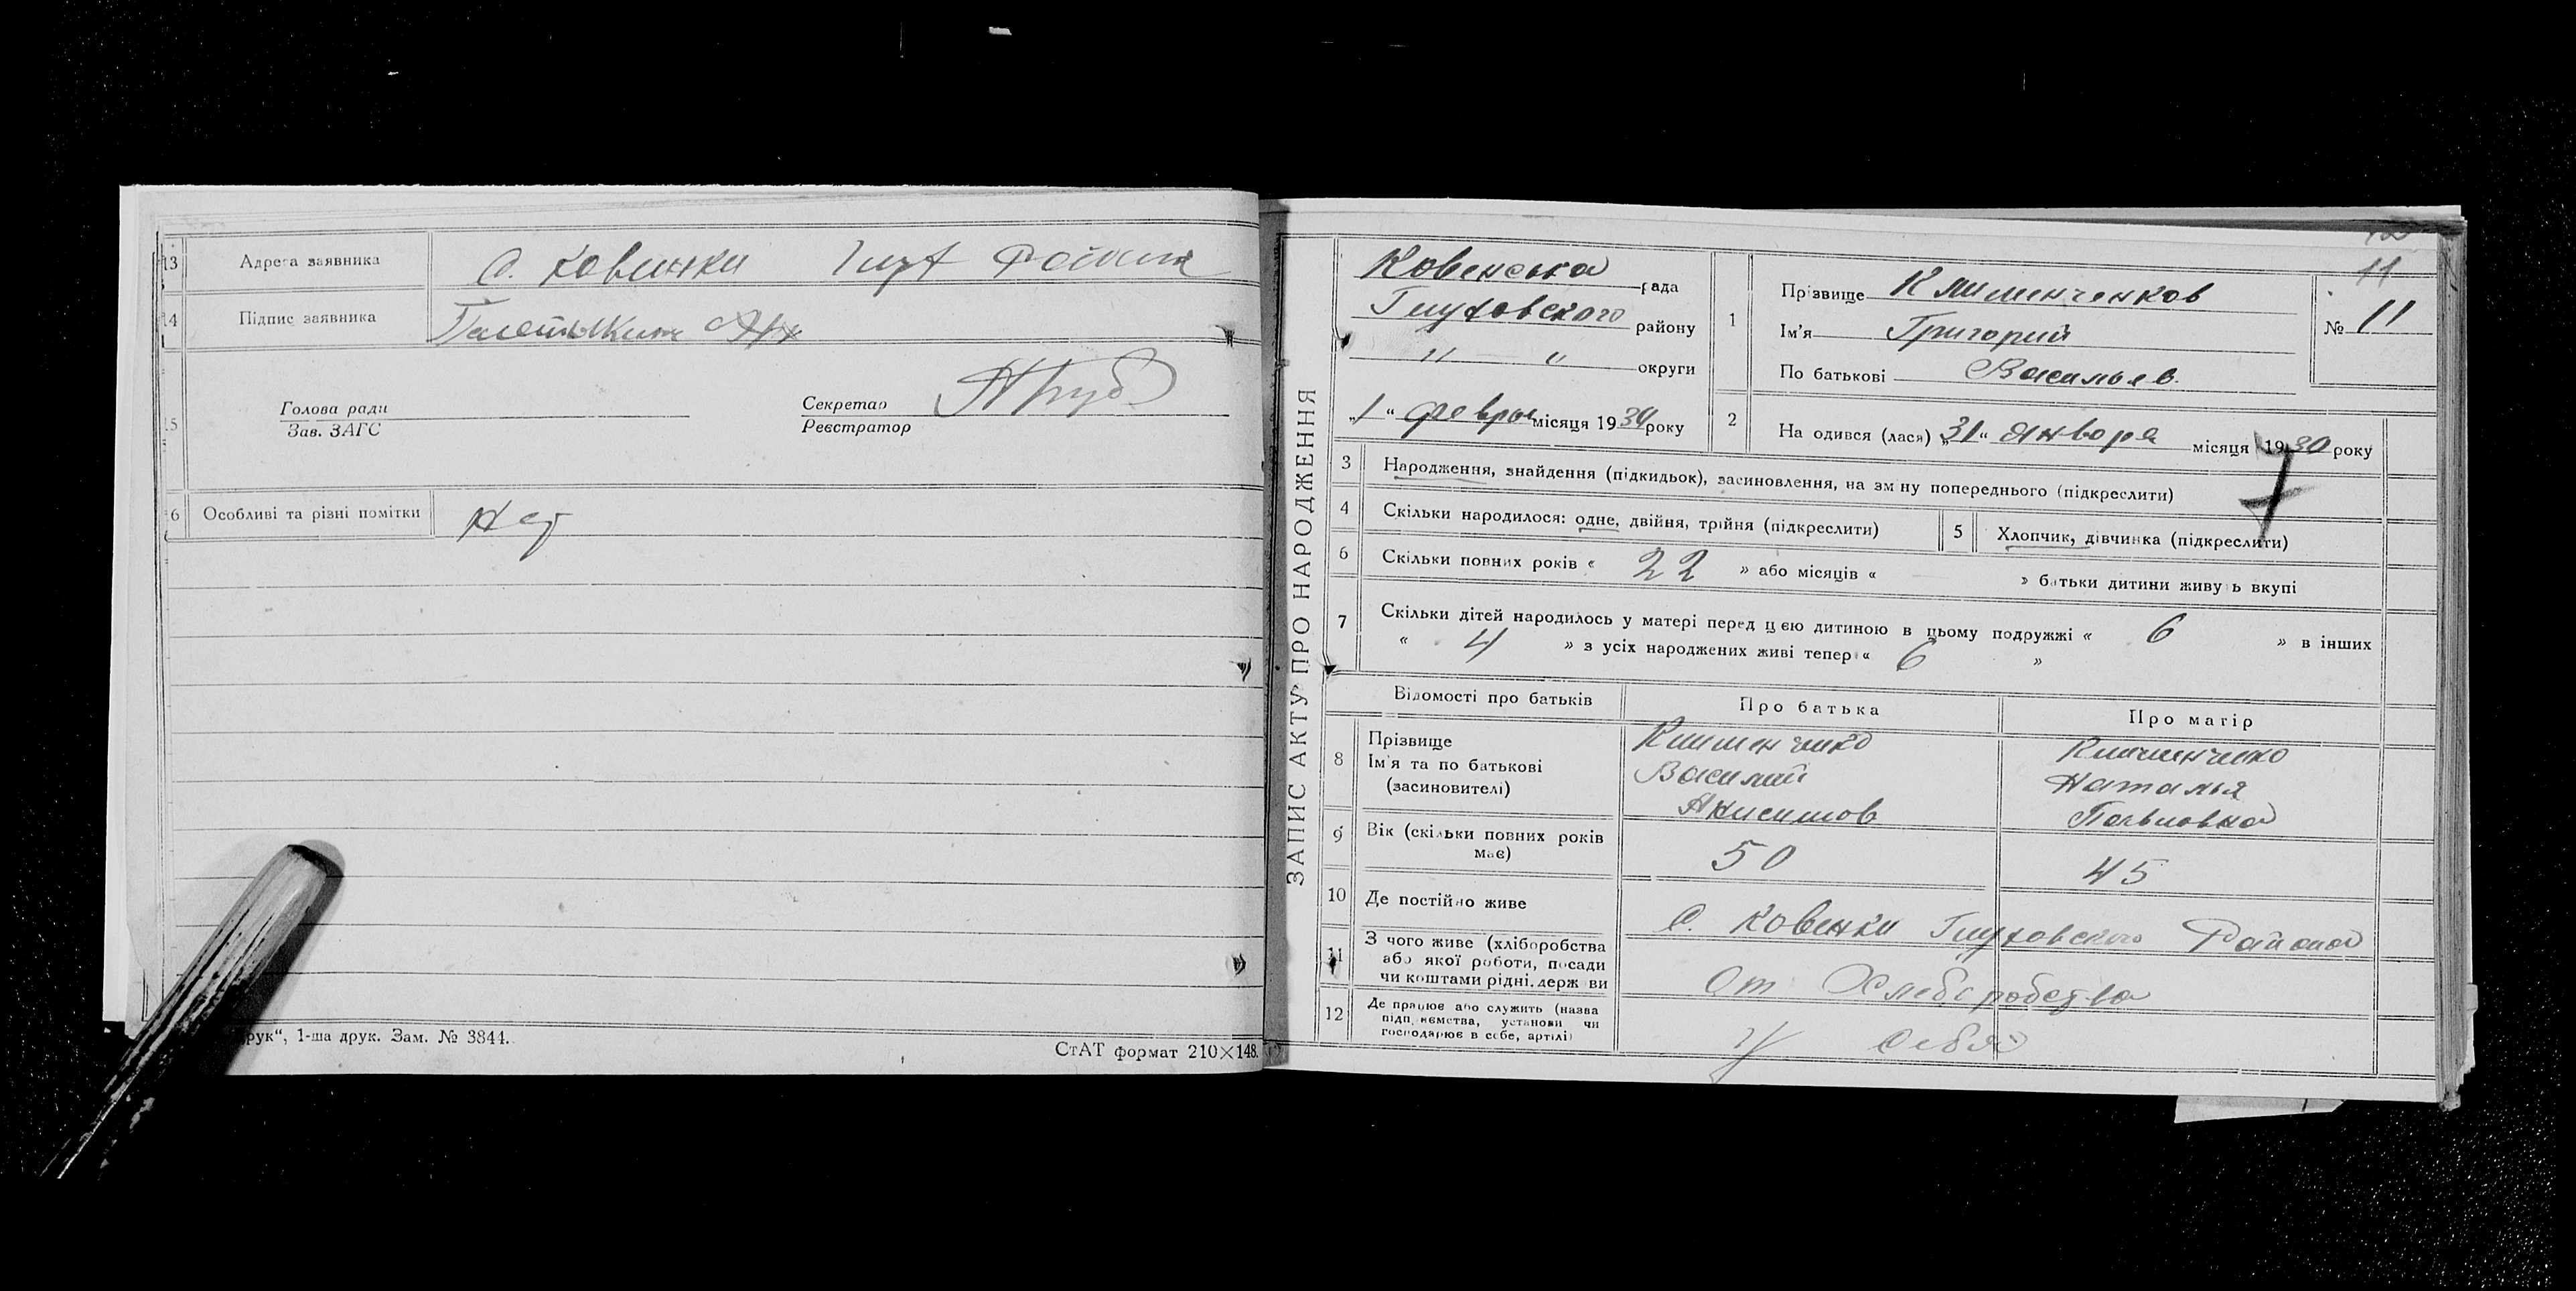 13 Адреса заявника С. Ковинки Глух Района
14 Підпис заявника
15 Голова ради
Зав. ЗАГС
Секретар
Реєстратор
16 Особливі та різні помітки Нет
друк“, 1-ша друк. Зам. № 3844.
СтАТ формат 210×148.
ЗАПИС АКТУ ПРО НАРОДЖЕННЯ
Ковенська рада
Глуховского району
" — " округи
„1“ февраля місяця 1930 року
11
№ 11
1 Прізвище Клименченков
Ім'я Григорий
По батькові Васильев.
2 На одився (лася) „31“ Января місяця 1930 року
3 Народження, знайдення (підкидьок), засиновлення, на зм ну попереднього (підкреслити)
4 Скільки народилося: одне, двійня, трійня (підкреслити)
5 Хлопчик, дівчинка (підкреслити)
6 Скільки повних років « 22 » або місяців « » батьки дитини живуть вкупі
7 Скільки дітей народилось у матері перед цією дитиною в цьому подружжі « 6 » в інших
« 4 » з усіх народжених живі тепер « 6 »
Відомості про батьків Про батька Про матір
8 Прізвище
Ім'я та по батькові
(засиновителі)
Клименченко
Василий
Анисимов
Клименченко
Наталья
Павловна
9 Вік (скільки повних років
має)
50 45
10 Де постійно живе С. Ковенки Глуховского Района
11 З чого живе (хліборобства
або якої роботи, посади
чи коштами рідні. держ ви
От Хлеборобства
12 Де працює або служить (назва
підприємства, установи чи
господарює в себе, артілі)
У себя